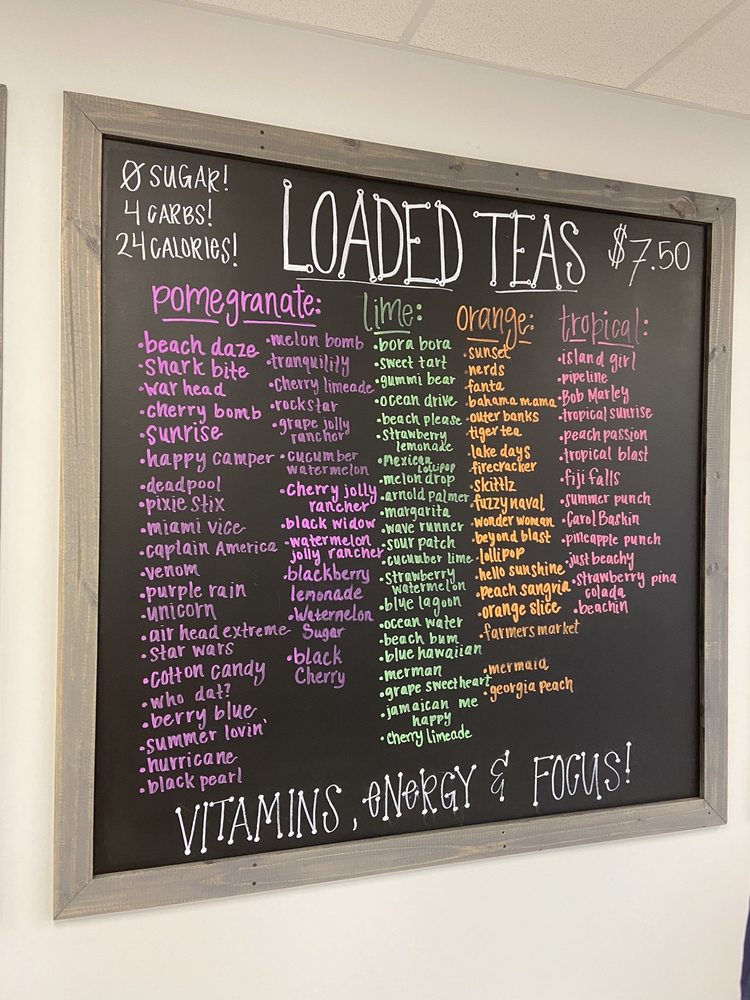 0 SUGAR!
4 CARBS!
24 CALORIES!
LOADED TEAS
$7.50
pomegranate:
•beach daze
•shark bite
•war head
•cherry bomb
•sunrise
•happy camper
•deadpool
•pixie stix
•miami vice
•captain America
•venom
•purple rain
•unicorn
•air head extreme
•star wars
•cotton candy
•who dat?
•berry blue
•summer lovin'
•hurricane
•black pearl
•melon bomb
•tranquility
•cherry limeade
•rockstar
•grape jolly
rancher
•cucumber
watermelon
•Cherry jolly
rancher
•black widow
•watermelon
jolly rancher
•blackberry
lemonade
•Watermelon
Sugar
•black
Cherry
lime:
•bora bora
•sweet tart
•gummi bear
•ocean drive
•beach please
•strawberry
lemonade
•mexican
lollipop
•melon drop
•arnold palmer
•margarita
•wave runner
•sour patch
•cucumber lime
•strawberry
watermelon
•blue lagoon
•ocean water
•beach bum
•blue hawaiian
•merman
•grape sweetheart
•jamaican me
happy
•cherry limeade
orange:
•sunset
•nerds
•fanta
•bahama mama
•outer banks
•tiger tea
•lake days
•firecracker
•skittlz
•fuzzy naval
•wonder woman
•beyond blast
•lollipop
•hello sunshine
•peach sangria
•orange slice
•farmers market
•mermaid
•georgia peach
tropical:
•island girl
•pipeline
•Bob Marley
•tropical sunrise
•peach passion
•tropical blast
•fiji falls
•summer punch
•Carol Baskin
•pineapple punch
•just beachy
•strawberry pina
colada
•beachin
VITAMINS, eNeRGY & FOCUS!